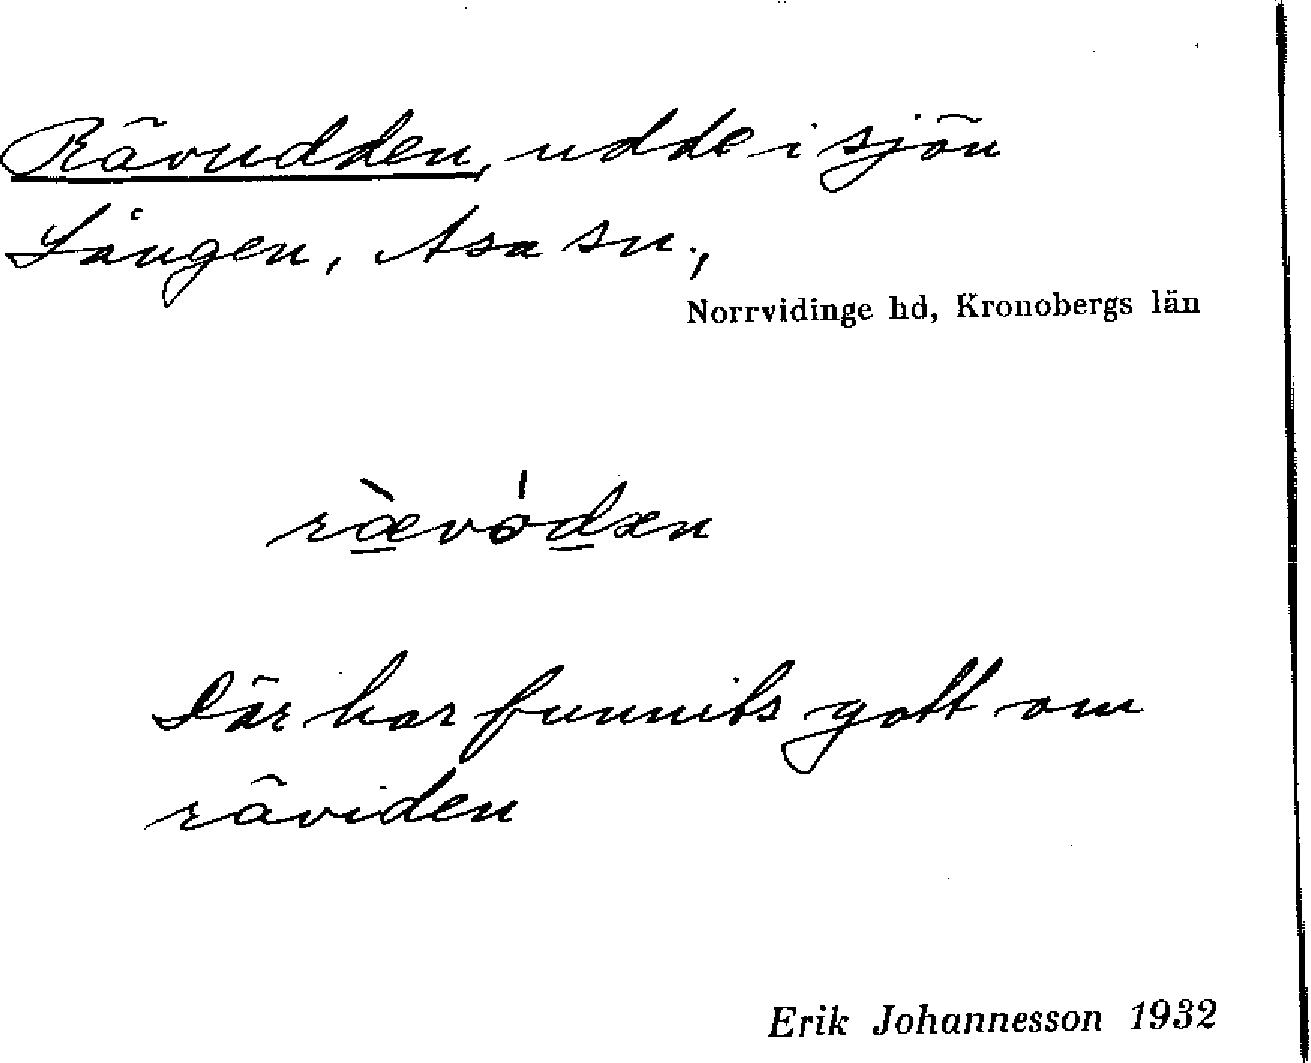 Rävudden, udde i sjön
Lången, Asa sn.,
Norrvidinge hd, Kronobergs län
ræ̀vódæn
Där har funnits gott om
räviden
Erik Johannesson 1932